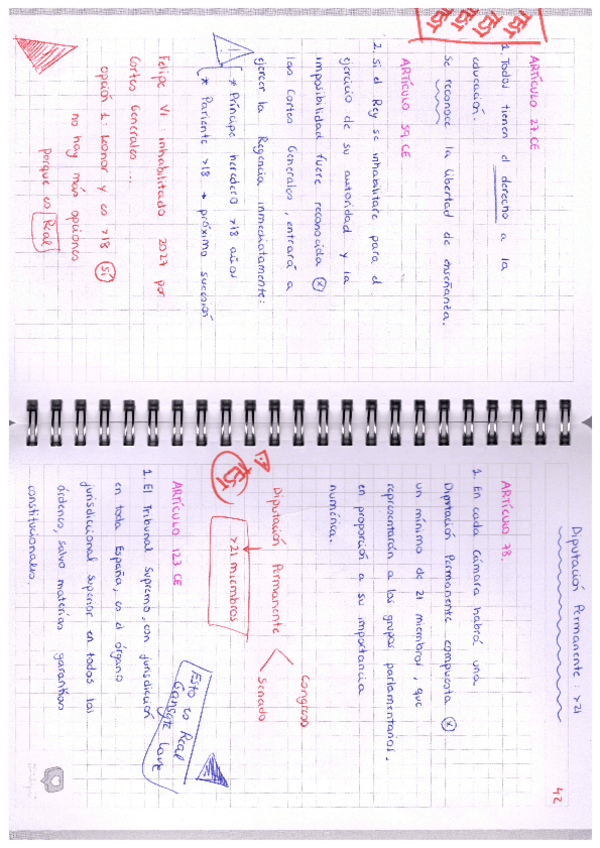 TEST TEST TEST TEST
ARTÍCULO 27. CE
1. Todos tienen el derecho a la
educación.
Se reconoce la libertad de enseñanza.
ARTÍCULO 59. CE
2. Si el Rey se inhabilitare para el
ejercicio de su autoridad y la
imposibilidad fuere reconocida x
las Cortes Generales, entrará a
ejercer la Regencia inmediatamente:
* Príncipe heredero >18 años
* Pariente >18 → próximo sucesión
Felipe VI inhabilitado 2027 por
Cortes Generales ...
opción 1: Leonor y es >18 SÍ
no hay más opciones
porque es Real
Diputación Permanente: >21
42
ARTÍCULO 78.
1. En cada Cámara habrá una
Diputación Permanente compuesta x
un mínimo de 21 miembros, que
representarán a los grupos parlamentarios,
en proporción a su importancia
numérica.
Congreso
Diputación Permanente <
Senado
>21 miembros
TEST
ARTÍCULO 123 CE
1. El Tribunal Supremo, con jurisdicción
en toda España, es el órgano
jurisdiccional superior en todos los
órdenes, salvo materias garantías
constitucionales.
Esto es Real